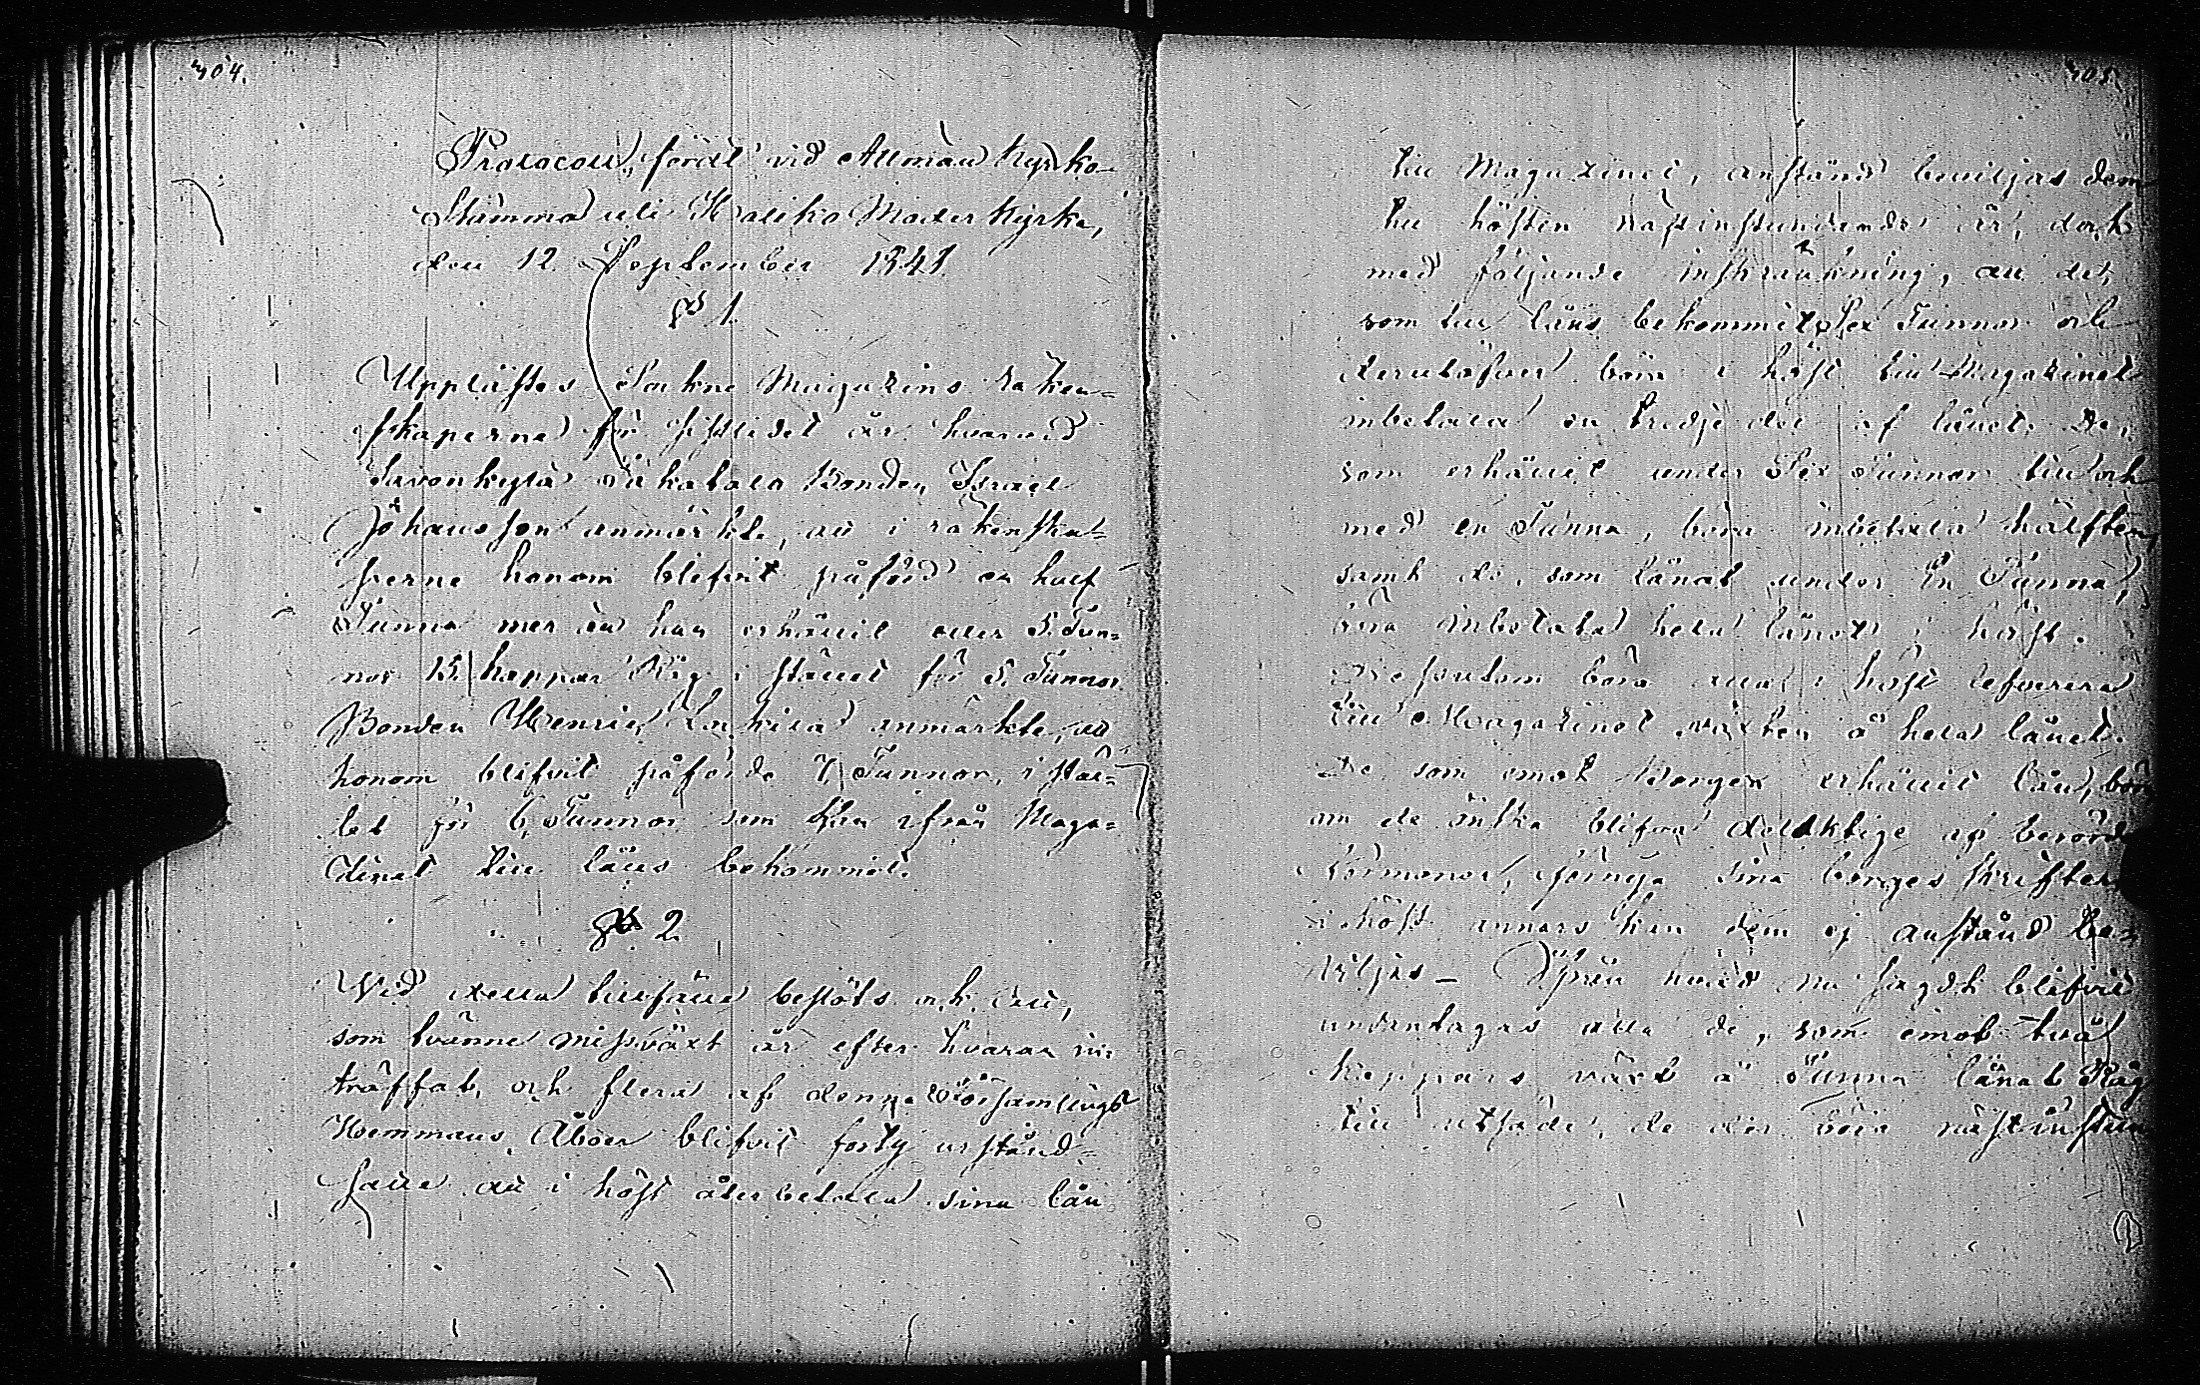 304.
Protocoll, fördt vid Allmän Kyrko-
Stämma uti Haliko Moder Kyrka,
den 12 September 1841.
§ 1.
Upplästes Sockne Magazins räken-
skaperna för sistlidet år hvarvid
Bonden Israel
Johansson anmärkte, att i räkenska-
perne honom blifvit påförd en half
Tunna mer än han erhållit eller 5. Tun-
nor 15. kappar Råg i stället för 5. Tunnor
Bonden Henric anmärkte, att
honom blifvit påförde 7 Tunnor, i stäl-
let för 6 Tunnor som han ifrån Maga-
zinet till låns bekommit.
§ 2.
Vid detta tillfälle beslöts ock att,
som tvänne missväxt år efter hvaran in-
träffat, och flera af denne Församlings
Hemmans Åboer blifvit
att i höst återbetala sina lån
305
till Magazinet, anstånd beviljas dem
till hösten nästinstundande år, dock
med följande inskränkning, att de,
som till låns bekommit Sex Tunnor och
derutöfver böra i höst till Magazinet
inbetala en tredje del af lånet. De,
som erhållit under Sex Tunnor till och
med en Tunna, böra inbetala hälften,
samt de, som lånat under En Tunna,
böra inbetala hela lånet i höst.
Dessutom böra alla i höst lefverera
till Magazinet växten å hela lånet.
De som emot Borgen erhållit lån, böra
om de önska blifva delaktige af berörde
förmoner, förnya sina borges skrifter
i höst annars kan dem ej anstånd be-
viljas - Ifrån hvad nu sagdt blifvit
undantagas alla de, som emot två
kappars växt å Tunna lånat Råg
till utsäde, de der böra nästinstun